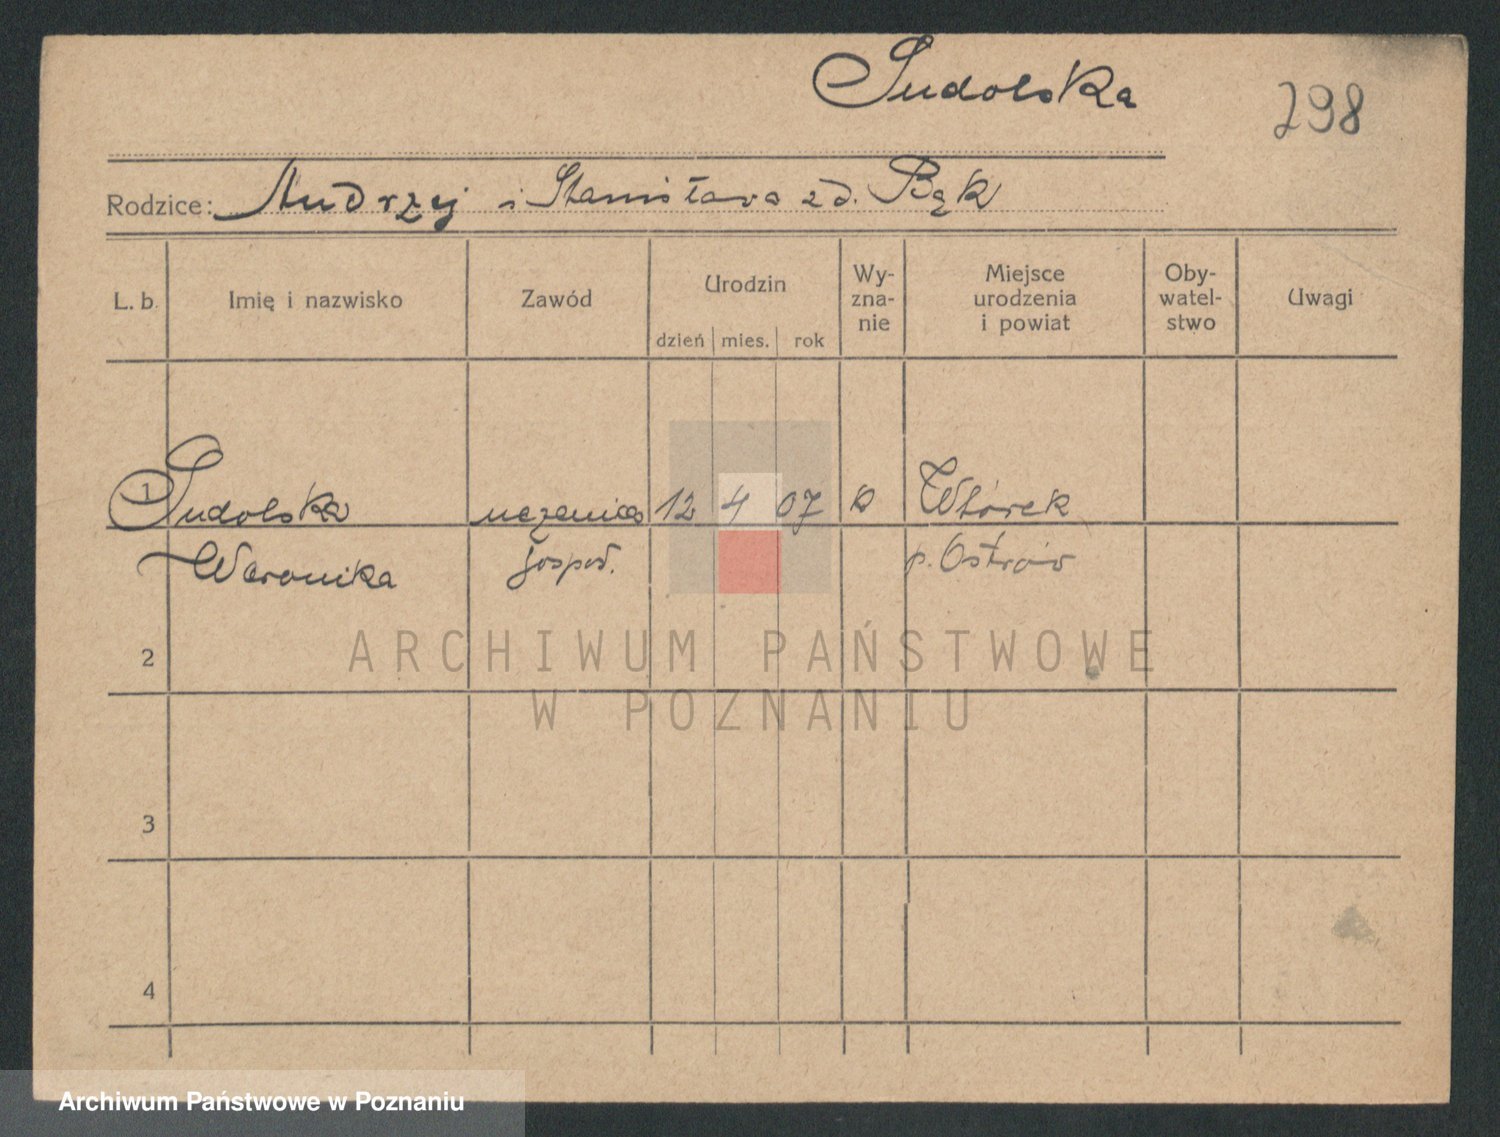 Sudolska
298
Rodzice: Andrzej i Stanisława zd. Bąk
L. b. Imię i nazwisko Zawód Urodzin dzień mies. rok Wy-zna-nie Miejsce urodzenia i powiat Oby-watel-stwo Uwagi
1 Sudolska uczenica 12 4 07 k Wtórek
Weronika gospod. p. Ostrów
2
ARCHIWUM PAŃSTWOWE
W POZNANIU
3
4
Archiwum Państwowe w Poznaniu